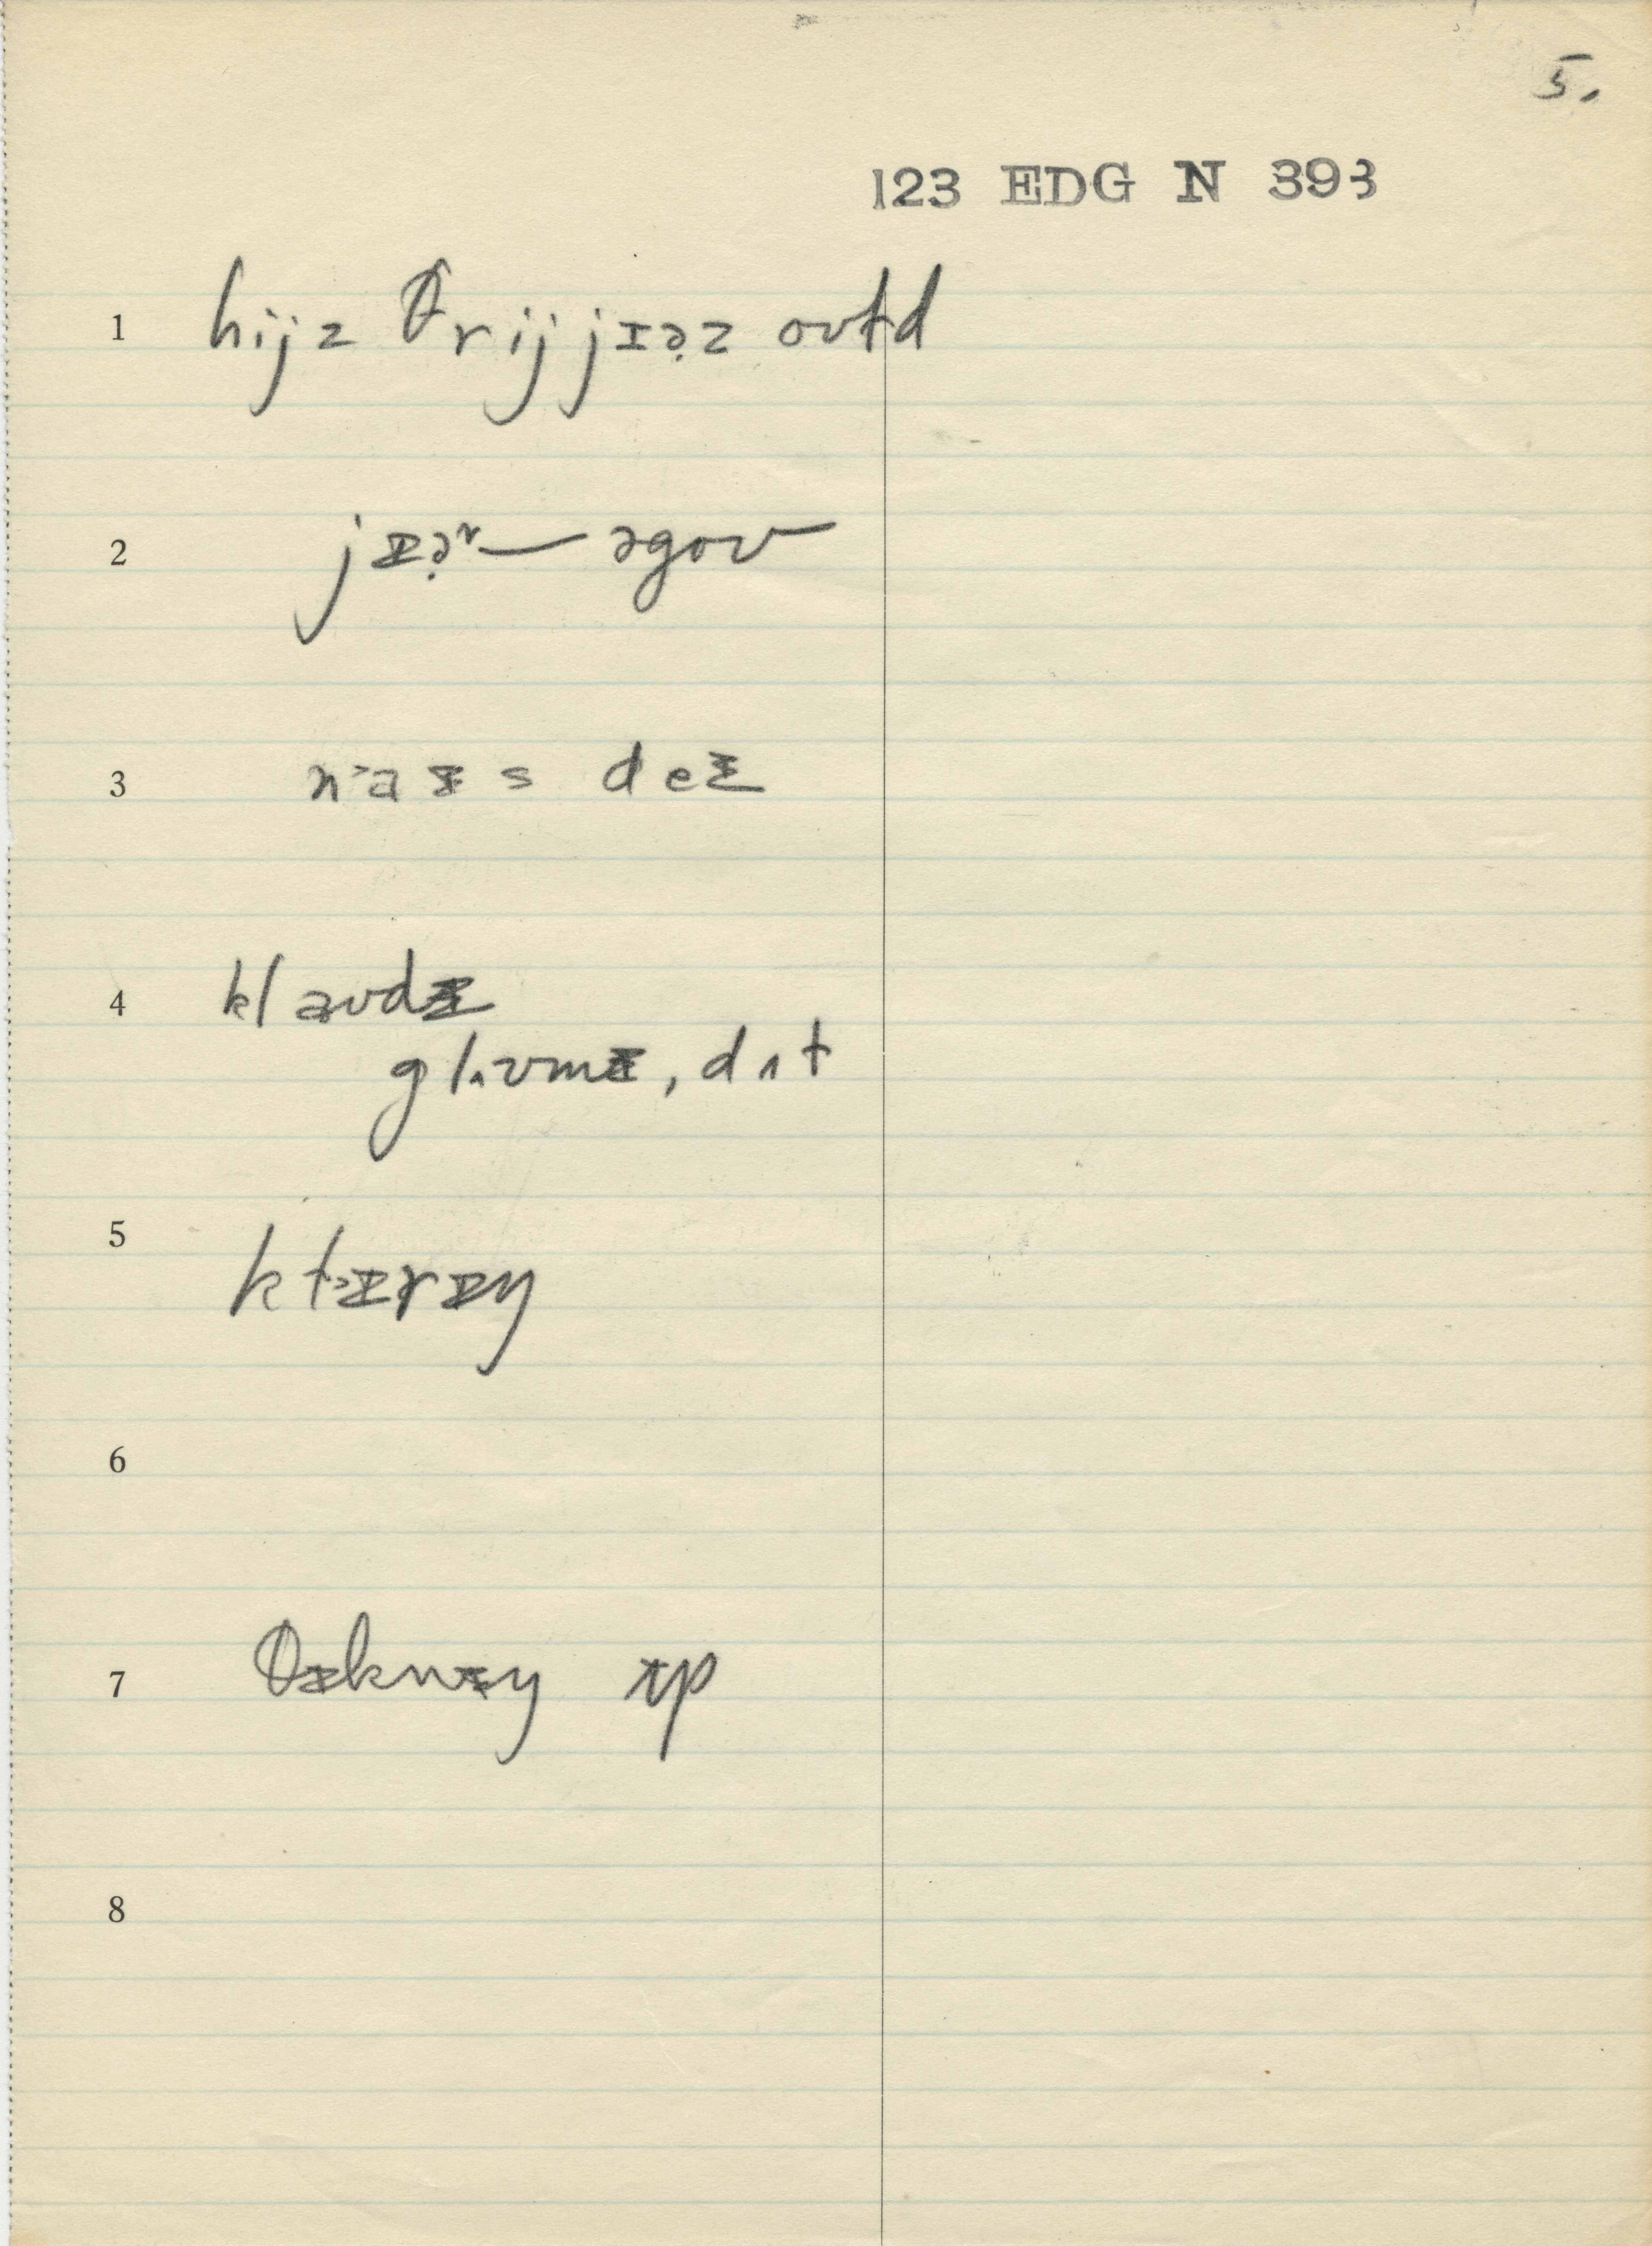 5.
123 EDG N 393
1 hijz θrij jɪə̣z oʊtd
2 jɪə̣ʳ— əgoʊ
3 naɪs deɪ
4 klaʊdɪ
glʌʊmɪ, dʌt
5 klɪrɪŋ
6
7 θɪknɪŋ ɪp
8